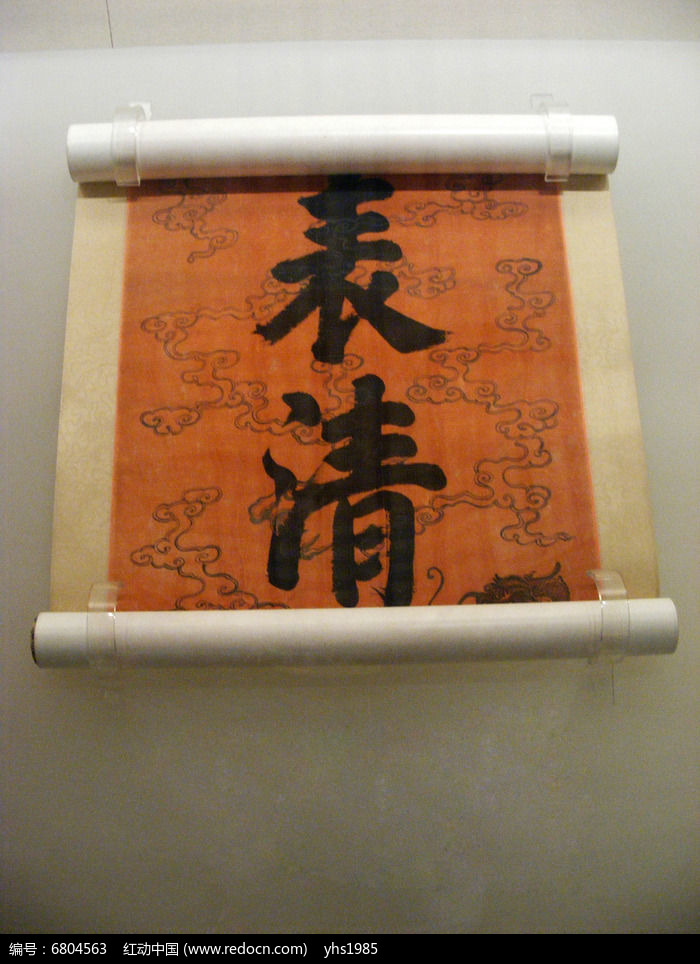 表
清
编号：6804563 红动中国 (www.redocn.com) yhs1985